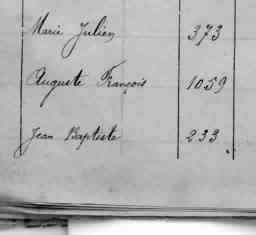 Marie Julien 373
Auguste François 1059
Jean Baptiste 233